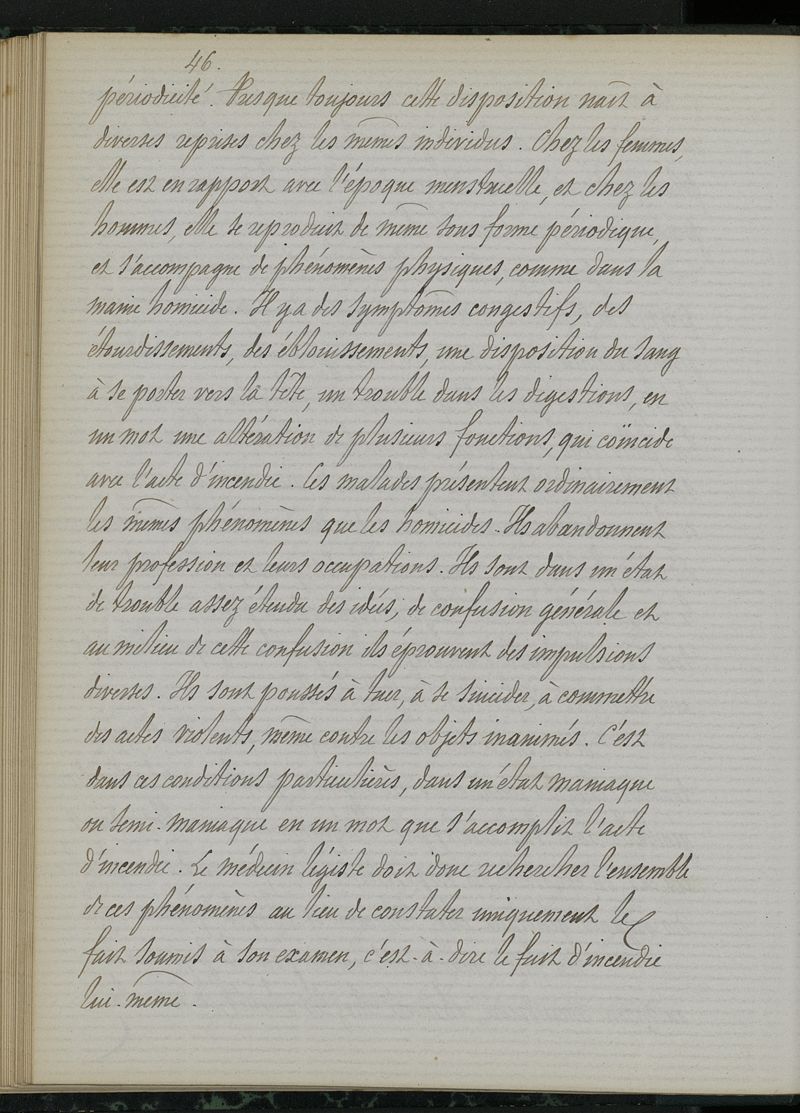 46.
périodicité. Presque toujours cette disposition naît à
diverses reprises chez les mêmes individus. Chez les femmes,
elle est en rapport avec l'époque menstruelle, et chez les
hommes, elle se reproduit de même sous forme périodique,
et s'accompagne de phénomènes physiques, comme dans la
manie homicide. Il y a des symptômes congestifs, des
étourdissements, des éblouissements, une disposition du sang
à se porter vers la tête, un trouble dans les digestions, en
un mot une altération de plusieurs fonctions, qui coïncide
avec l'acte d'incendie. Ces malades présentent ordinairement
les mêmes phénomènes que les homicides. Ils abandonnent
leur profession et leurs occupations. Ils sont dans un état
de trouble assez étendu des idées, de confusion générale et
au milieu de cette confusion ils éprouvent des impulsions
diverses. Ils sont poussés à tuer, à se suicider, à commettre
des actes violents, même contre les objets inanimés. C'est
dans ces conditions particulières, dans un état maniaque
ou semi-maniaque en un mot que s'accomplit l'acte
d'incendie. Le médecin légiste doit donc rechercher l'ensemble
de ces phénomènes au lieu de constater uniquement le
fait soumis à son examen, c'est-à-dire le fait d'incendie
lui-même.